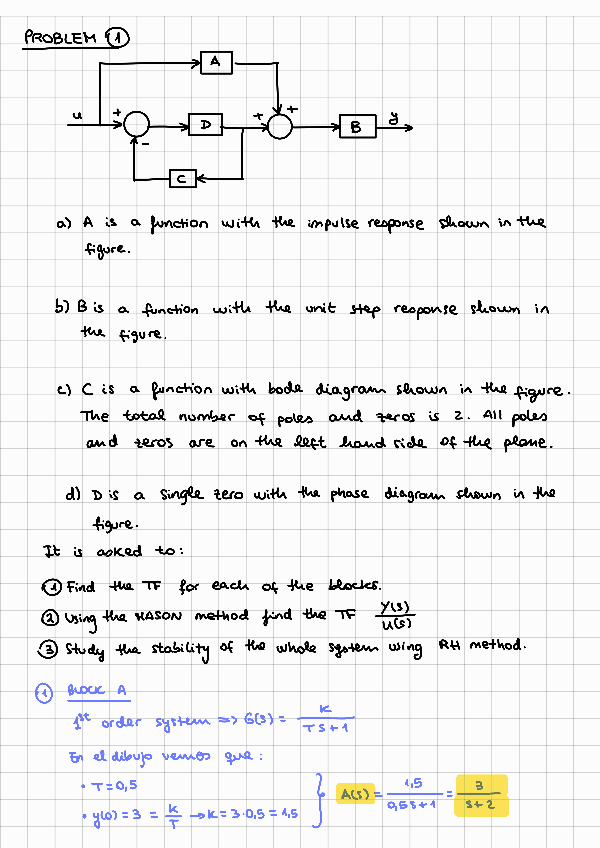 PROBLEM 1
A
u
+
+
+
D
B
y
-
C
a) A is a function with the impulse response shown in the
figure.
b) B is a function with the unit step response shown in
the figure.
c) C is a function with bode diagram shown in the figure.
The total number of poles and zeros is 2. All poles
and zeros are on the left hand side of the plane.
d) D is a single zero with the phase diagram shown in the
figure.
It is asked to:
1 Find the TF for each of the blocks.
2 Using the MASON method find the TF Y(s)/U(s)
3 Study the stability of the whole system using RH method.
1 BLOCK A
1st order system => G(s) = K/(Ts+1)
En el dibujo vemos que:
• T=0,5
• y(0)=3 = K/T → K=3·0,5=1,5
A(s) = 1,5/(0,5s+1) = 3/(s+2)